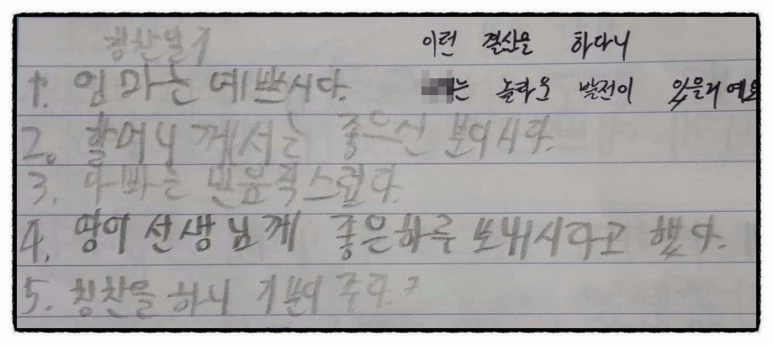 칭찬일기
이런 결심을 하다니
는 놀라운 발전이 있을거예요
1. 엄마는 예쁘시다.
2. 할머니 께서는 좋으신 분이시다.
3. 아빠는
4. 영어 선생님께 좋은하루 보내시라고 했다.
5. 칭찬을 하니 기분이